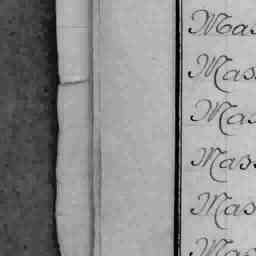 Mas
Mas
Mas
Mass
Mas
Mas